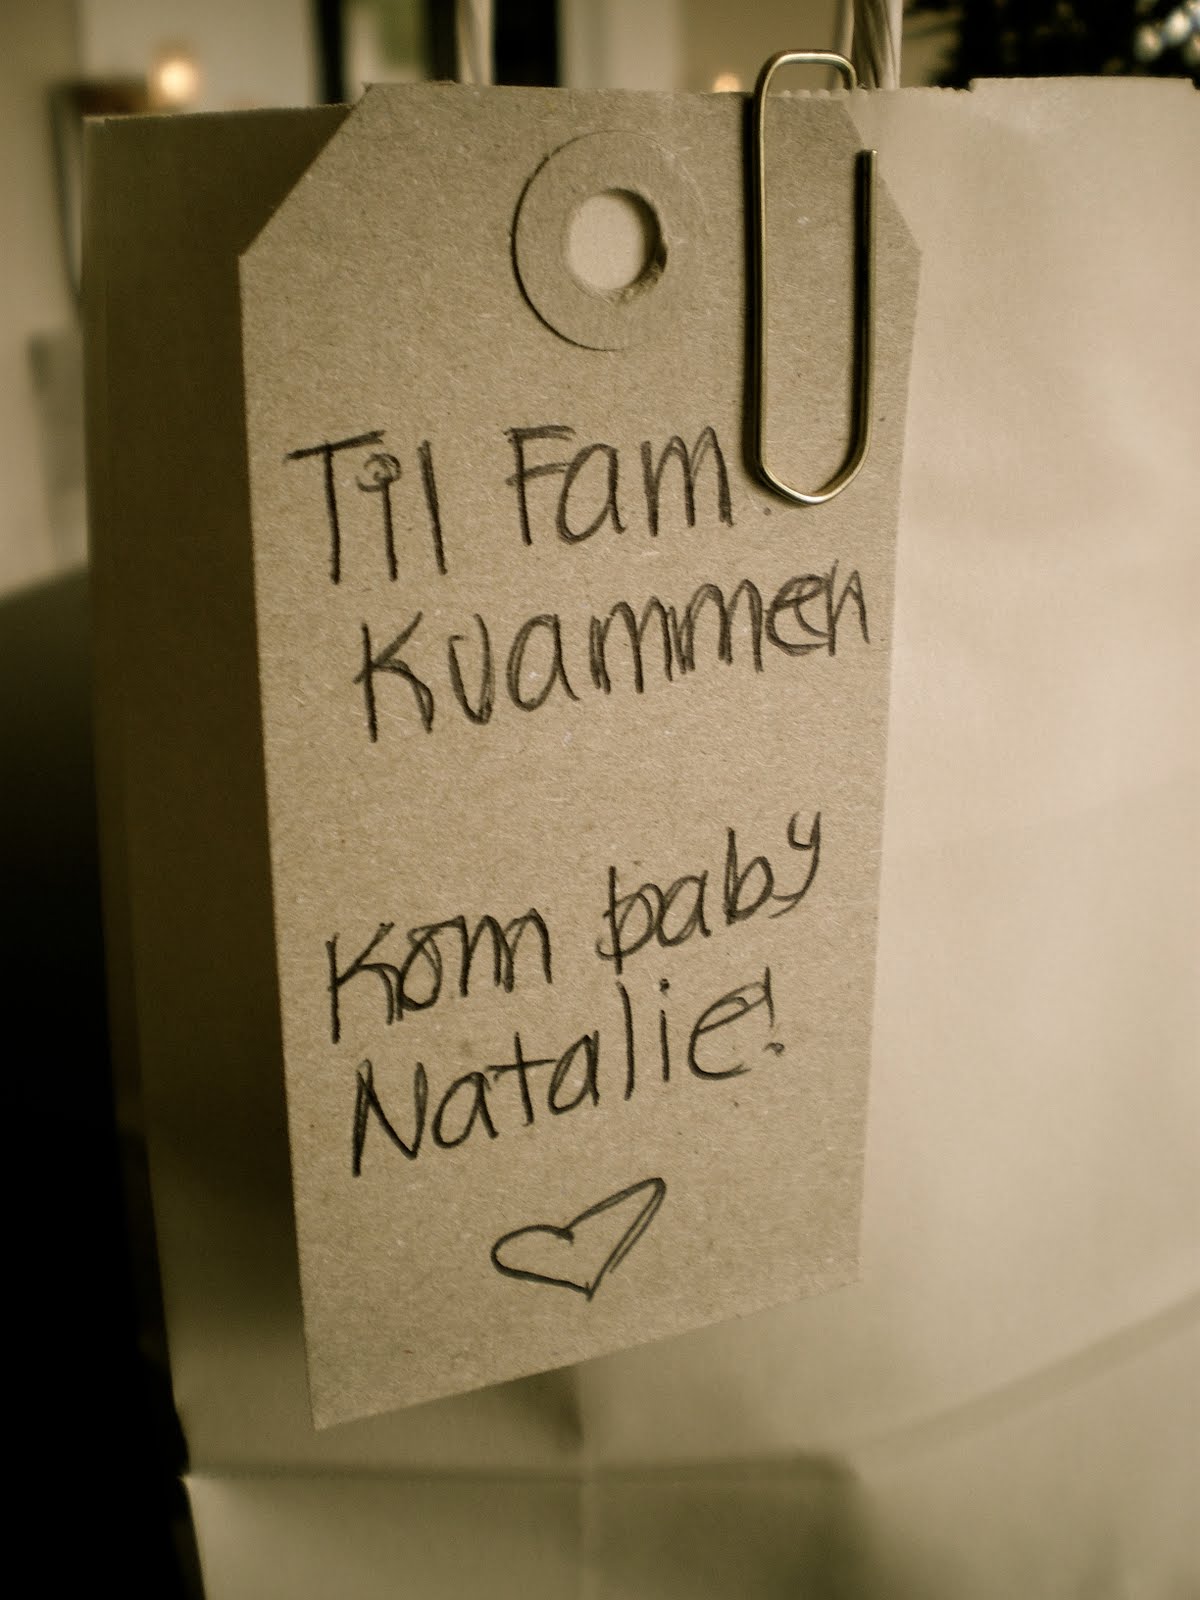 Til Fam.
Kvammen
Kom baby
Natalie!